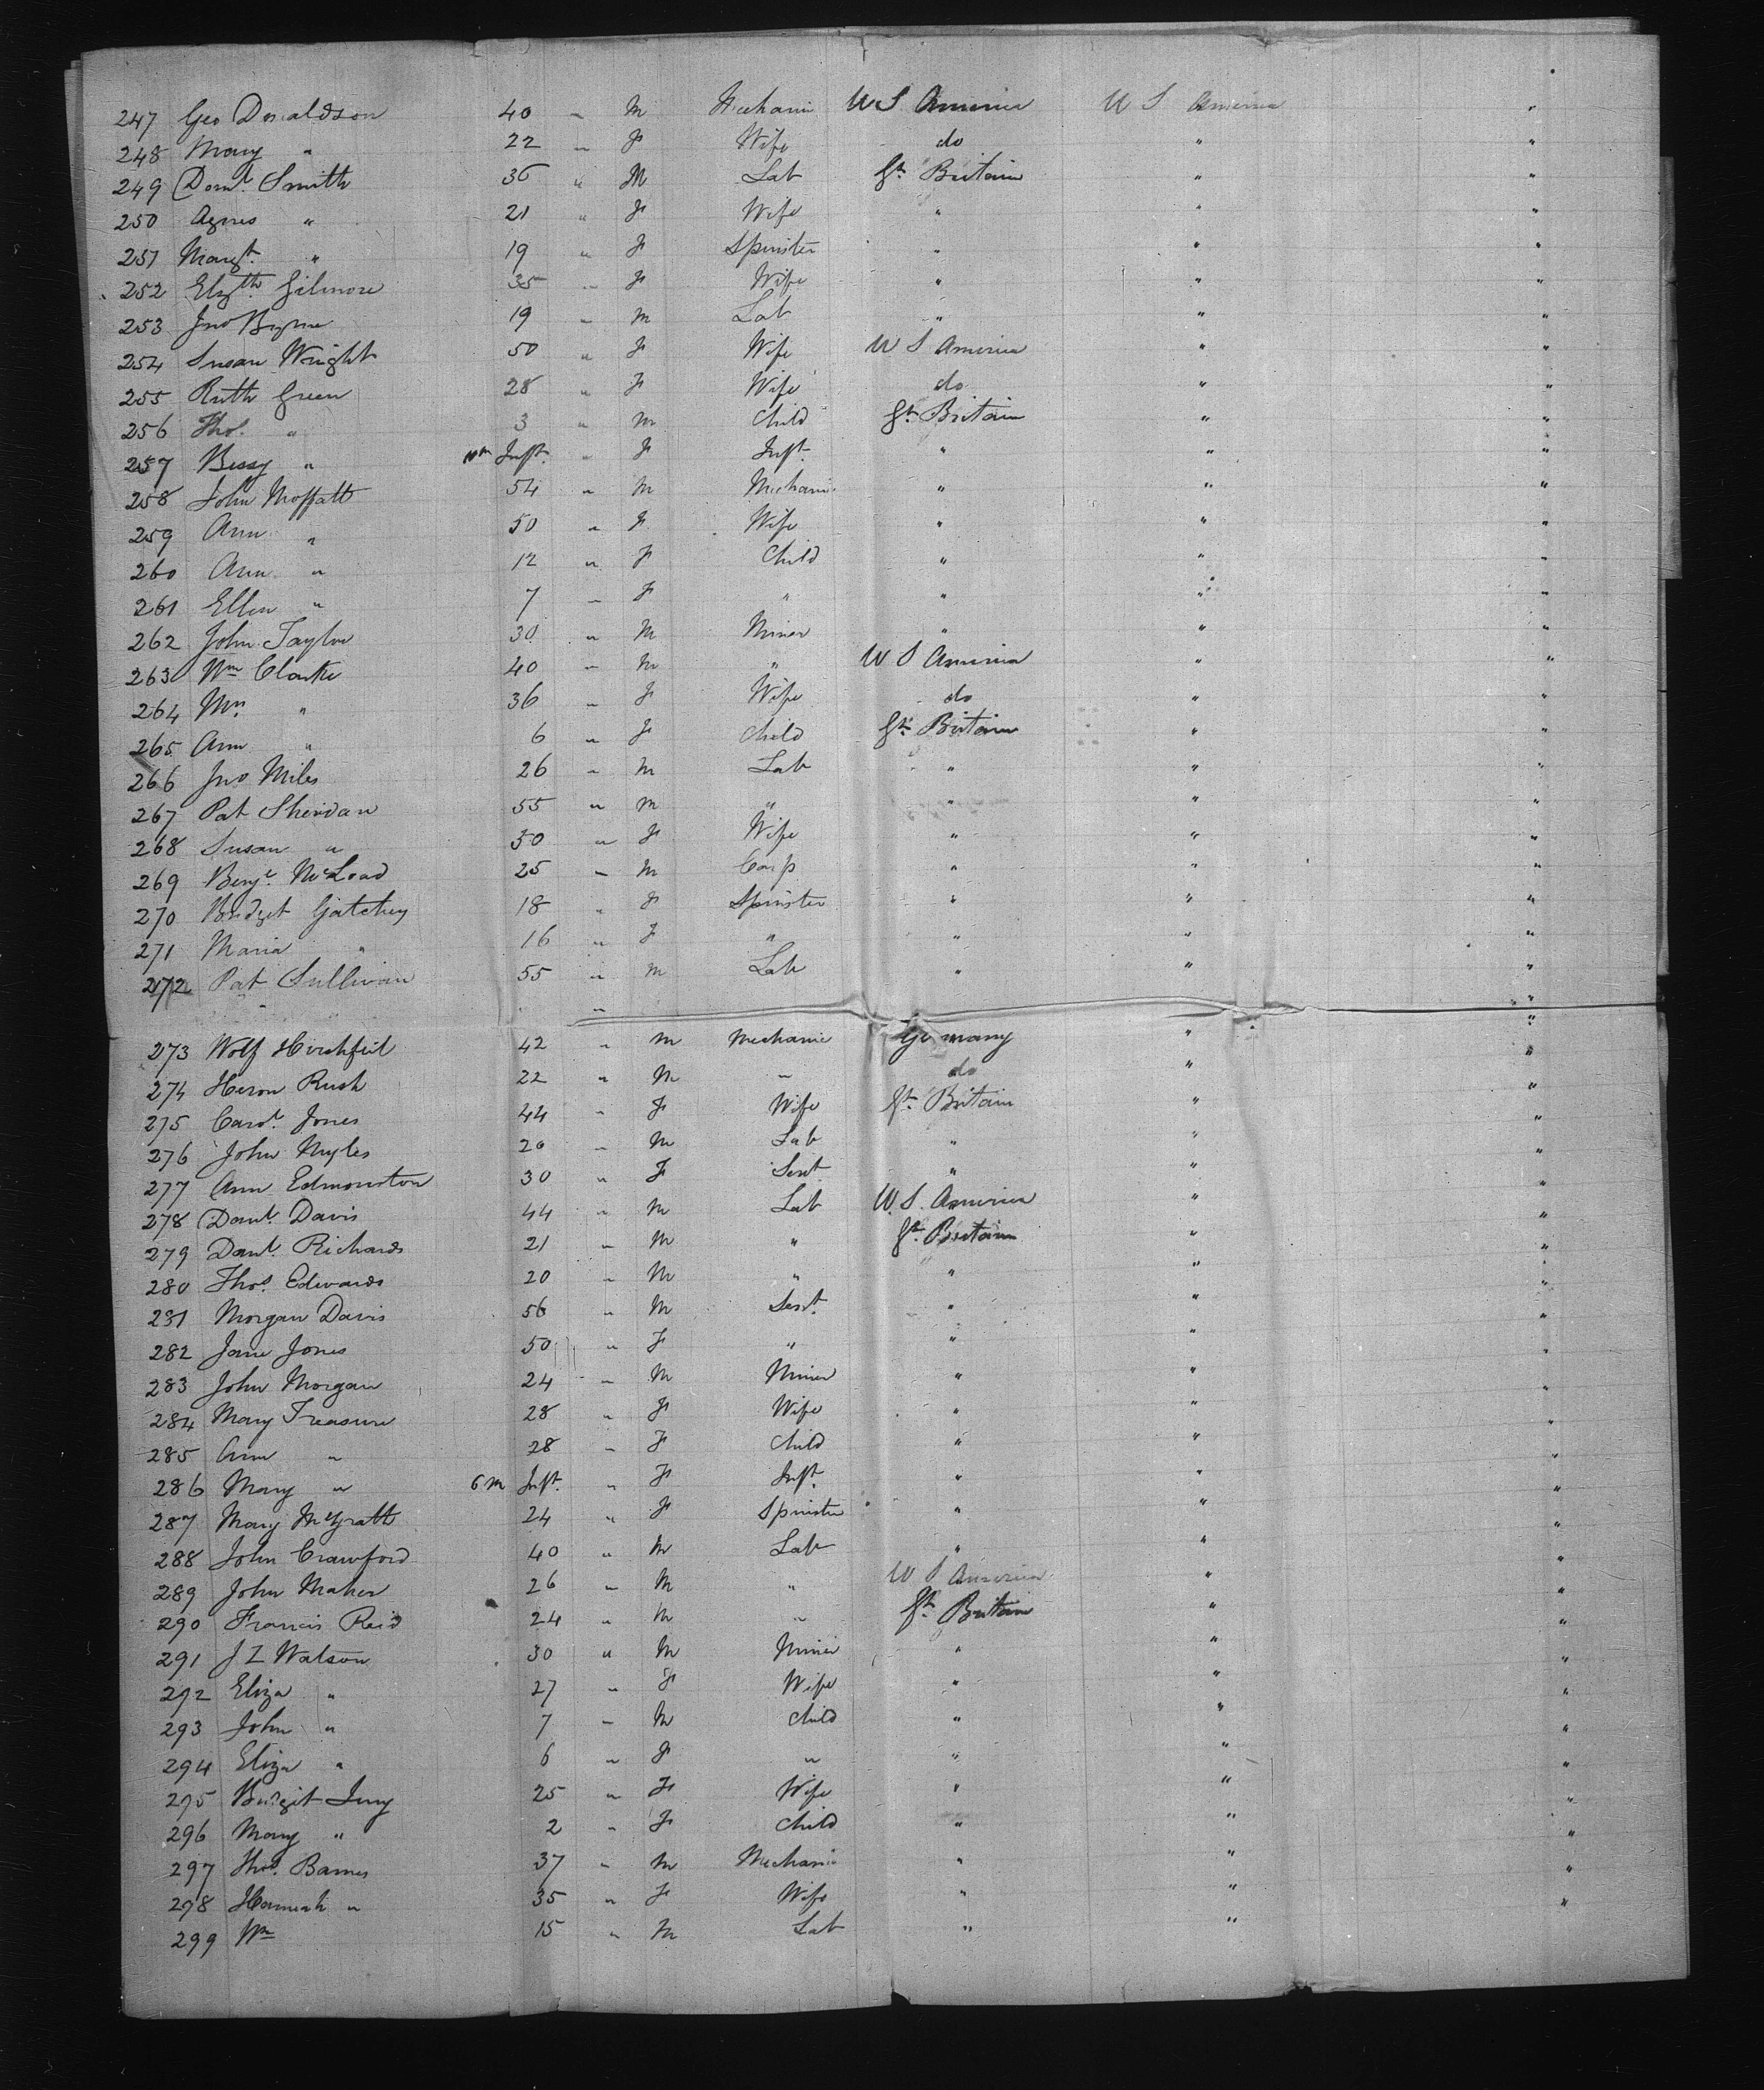 247 Geo Donaldson 40 " M Mechanic U S America U S America "
248 Mary " 22 " F Wife do " "
249 Danl. Smith 36 " M Lab Gt. Britain " "
250 Agnes " 21 " F Wife " " "
251 Margt. " 19 " F Spinster " " "
252 Elizth Gilmore 35 " F Wife " " "
253 Jno Byrne 19 " M Lab " " "
254 Susan Wright 50 " F Wife U S America " "
255 Ruth Green 28 " F Wife do " "
256 Thos. " 3 " M Child Gt. Britain " "
257 Bessy " Inft. " F Inft. " " "
258 John Moffatt 54 " M Mechanic " " "
259 Ann " 50 " F Wife " " "
260 Ann " 12 " F Child " " "
261 Ellen " 7 " F " " " "
262 John Taylor 30 " M Miner " " "
263 Wm Clarke 40 " M " U S America " "
264 Mrs " 36 " F Wife do " "
265 Ann " 6 " F Child Gt. Britain " "
266 Jno Miles 26 " M Lab " " "
267 Pat Sheridan 55 " M " " " "
268 Susan " 50 " F Wife " " "
269 Benj. McLoad 25 " M Carp " " "
270 Bridget Gatchey 18 " F Spinster " " "
271 Maria " 16 " F " " " "
272 Pat Sullivan 55 " M Lab " " "
273 Wolf Hirchfeil 42 " M Mechanic Germany " "
274 Heron Rush 22 " M " do " "
275 Carol. Jones 44 " F Wife Gt. Britain " "
276 John Myles 26 " M Lab " " "
277 Ann Edmonston 30 " F Servt. " " "
278 Danl. Davis 44 " M Lab U.S. America " "
279 Danl. Richards 21 " M " Gt. Britain " "
280 Thos Edwards 20 " M " " " "
281 Morgan Davis 56 " M Servt. " " "
282 Jane Jones 50 " F " " " "
283 John Morgan 24 " M Miner " " "
284 Mary Treasure 28 " F Wife " " "
285 Ann " 28 " F Child " " "
286 Mary " 6 m Inft. " F Inft. " " "
287 Mary McGrath 24 " F Spinster " " "
288 John Crawford 40 " M Lab " " "
289 John Maher 26 " M " U S America " "
290 Francis Reid 24 " M " Gt. Britain " "
291 J I Watson 30 " M Miner " " "
292 Eliza " 27 " F Wife " " "
293 John " 7 " M Child " " "
294 Eliza " 6 " F " " " "
295 Bridgit 25 " F Wife " " "
296 Mary " 2 " F Child " " "
297 Thos. Barnes 37 " M Mechanic " " "
298 Hannah " 35 " F Wife " " "
299 Wm 15 " M Lab " "